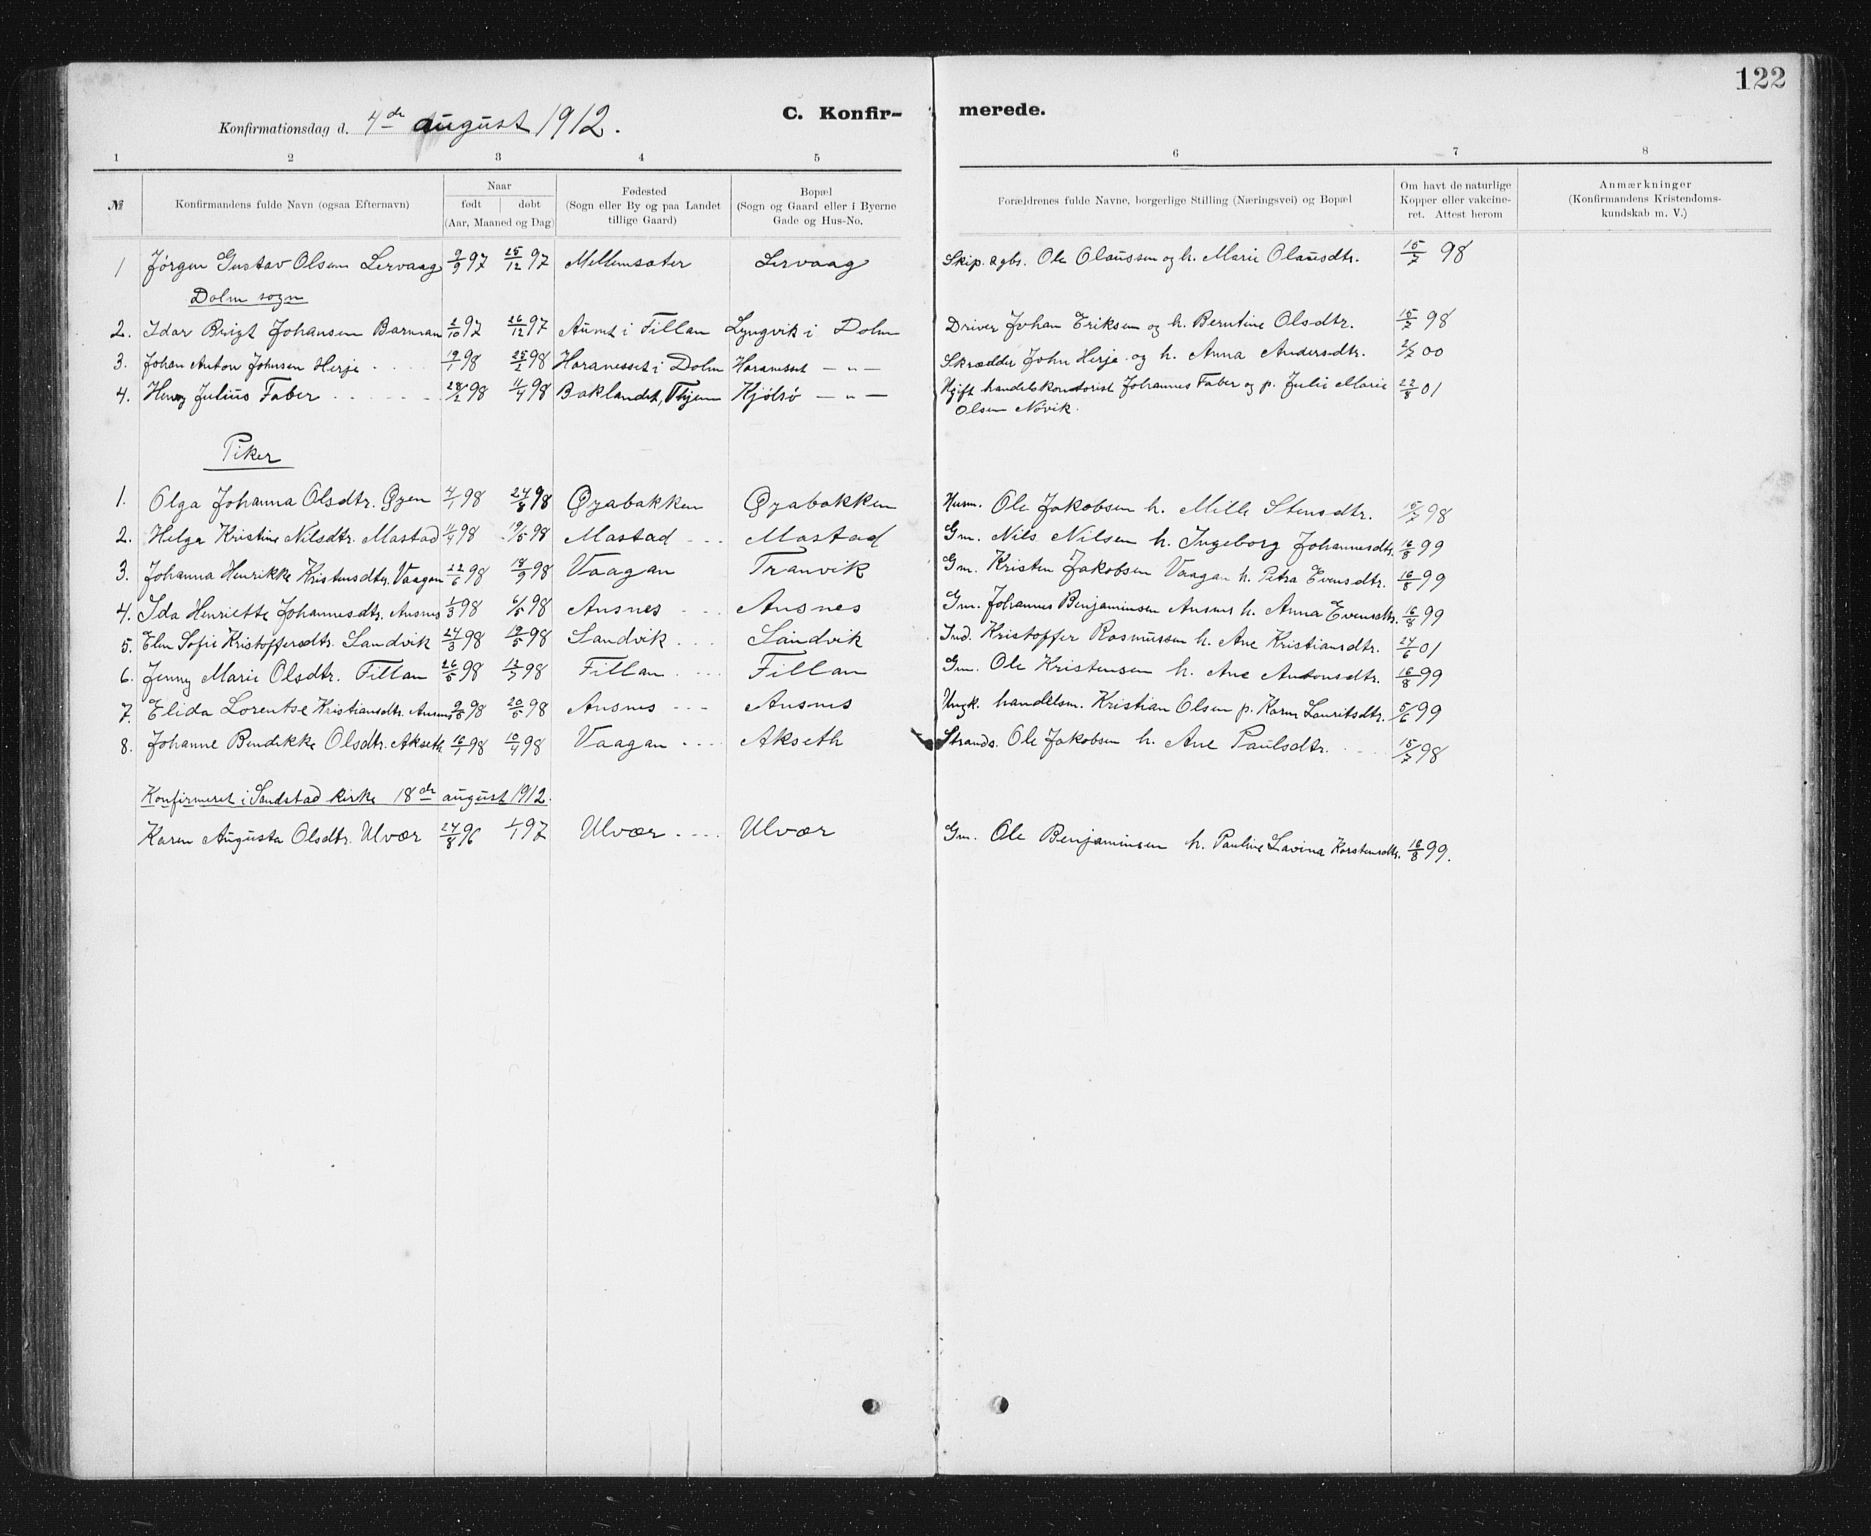 122
Konfirmationsdag d. 4de august 1912.
C. Konfir- merede.
1 2 3 4 5 6 7 8
№
Konfirmandens fulde Navn (ogsaa Efternavn)
Naar
født døbt
(Aar, Maaned og Dag)
Fødested
(Sogn eller By og paa Landet
tillige Gaard)
Bopæl
(Sogn og Gaard eller i Byerne
Gade og Hus-No.
Forældrenes fulde Navne, borgerlige Stilling (Næringsvei) og Bopæl
Om havt de naturlige
Kopper eller vakcine-
ret. Attest herom
Anmærkninger
(Konfirmandens Kristendoms-
kundskab m. V.)
1 Jørgen Gustav Olsen Lervaag 9/9 97 25/12 97 Mellemsæter Lervaag Skip. & gbr. Ole Olaussen og h. Marie Olausdtr. 15/7 98
Dolm sogn
2. Idar Brigt Johansen Barman 2/10 97 26/12 97 Aunet i Fillan Lyngvik i Dolm Driver Johan Eriksen og h. Berntine Olsdtr. 15/7 98
3. Johan Anton Johnsen Herje 19/1 98 25/2 98 Haranesset i Dolm Haranesset — " — Skrædder John Herje og h. Anna Andersdtr. 2/7 00
4. Henry Julius Faber 28/2 98 11/4 98 Baklandet, Thjem Kjølsø — " — Gift handelskontorist Johannes Faber og p. Julie Marie 22/8 01
Olsen Nøvik.
Piker
1. Olga Johanna Olsdtr. Øyen 4/1 98 24/8 98 Øyabakken Øyabakken Husm. Ole Jakobsen h. Mille Stensdtr. 15/7 98
2. Helga Kristine Nilsdtr. Mastad 11/4 98 19/5 98 Mastad Mastad Gm. Nils Nilsen h. Ingeborg Johannesdtr. 16/8 99
3. Johanna Henrikke Kristensdtr. Vaagan 22/6 98 18/9 98 Vaagan Tranvik Gm. Kristen Jakobsen Vaagan h. Petra Evensdtr. 16/8 99
4. Ida Henriette Johannesdtr. Ansnes 1/3 98 6/5 98 Ansnes Ansnes Gm. Johannes Benjaminsen Ansnes h. Anna Evensdtr. 16/8 99
5. Elen Sofie Kristoffersdtr. Sandvik 24/3 98 19/5 98 Sandvik Sandvik Ind. Kristoffer Rasmussen h. Ane Kristiansdtr. 27/6 01
6. Jenny Marie Olsdtr. Fillan 26/5 98 12/7 98 Fillan Fillan Gm. Ole Kristensen h. Ane Antonsdtr. 16/8 99
7. Elida Lorentse Kristiansdtr. Ansnes 9/5 98 20/5 98 Ansnes Ansnes Ungk. handelsm. Kristian Olsen p. Karen Lauritsdtr. 5/6 99
8. Johanne Bendikke Olsdtr. Akseth 16/1 98 10/4 98 Vaagan Akseth Strands. Ole Jakobsen h. Ane Paulsdtr. 15/7 98
Konfirmeret i Sandstad kirke 18de august 1912.
Karen Augusta Olsdtr. Ulvær 24/8 96 1/1 97 Ulvær Ulvær Gm. Ole Benjaminsen h. Pauline Lavina Karstensdtr. 16/8 99.